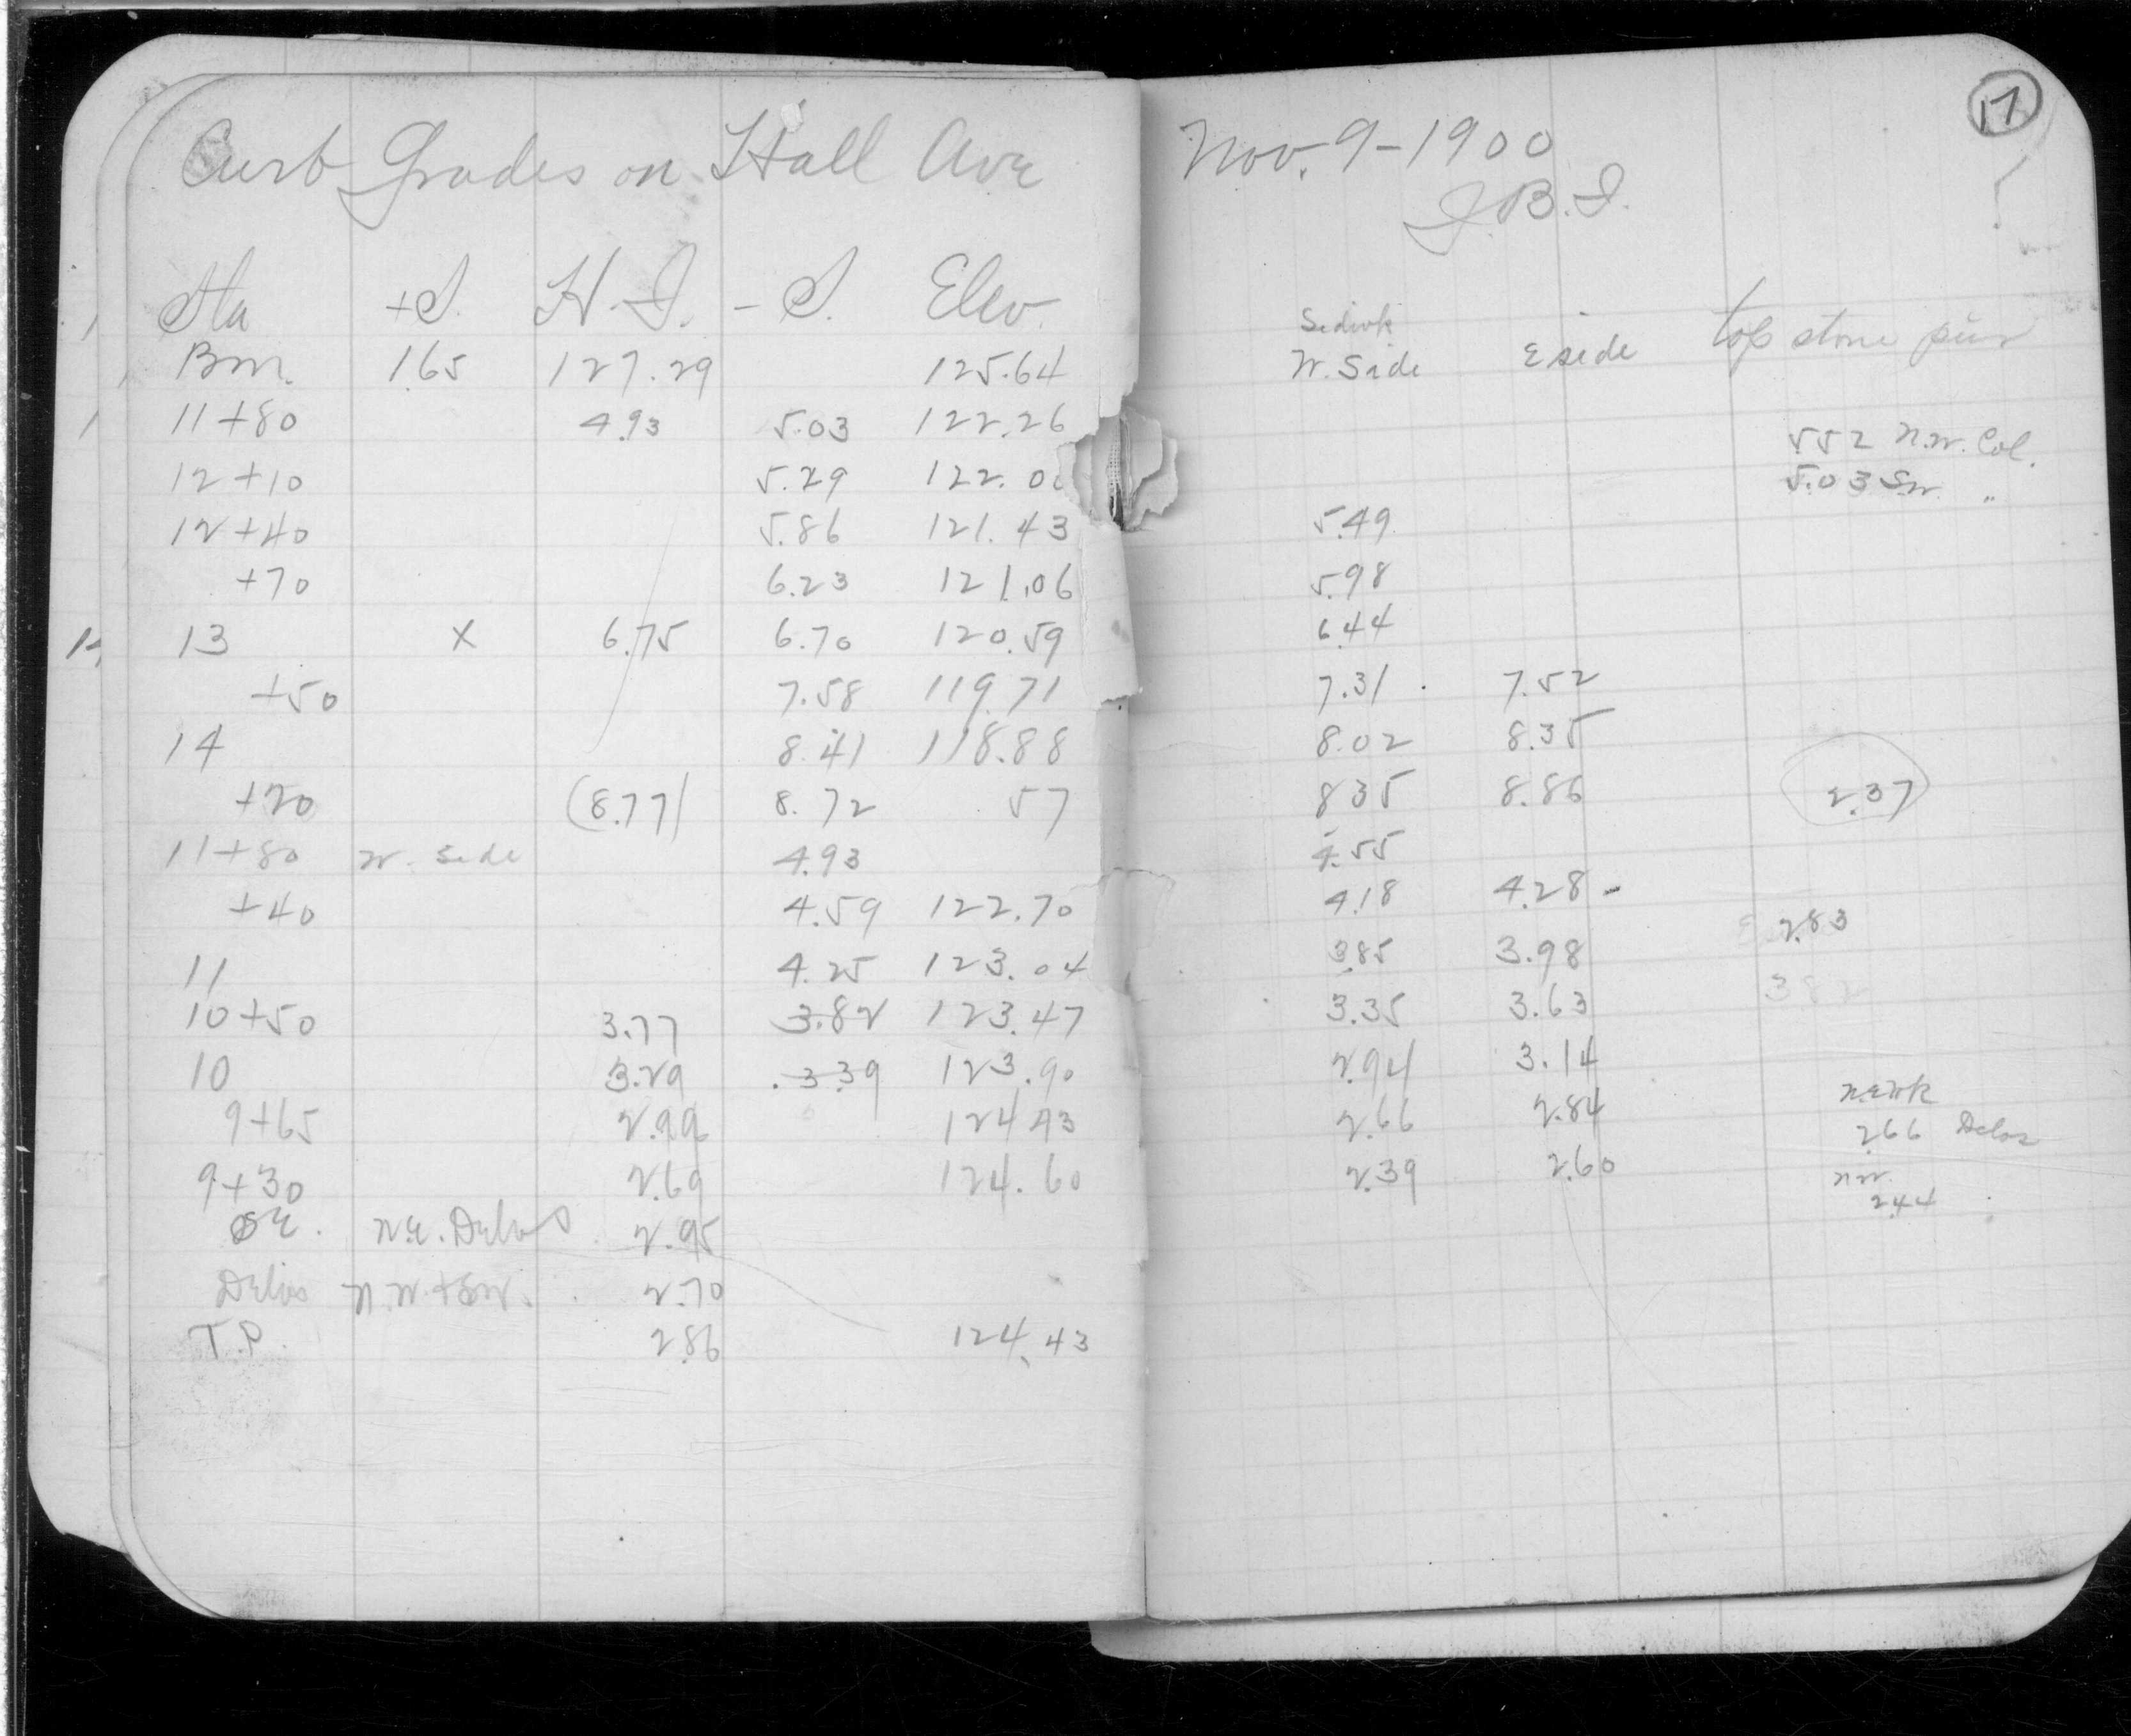 Curb Grades on Hall Ave
Sta +S. H.I. -S. Elev.
Bm. 1.65 127.29 125.64
11+80 4.93 5.03 122.26
12+10 5.29 122.0
12+40 5.86 121.43
+70 6.23 121.06
13 X 6.75 6.70 120.59
+50 7.58 119.71
14 8.41 118.88
+20 (8.77) 8.72 57
11+80 W. Side 4.93
+40 4.59 122.70
11 4.25 123.04
10+50 3.77 3.82 123.47
10 3.29 3.39 123.90
9+65 2.99 124.43
9+30 2.69 124.60
SE. N.E. Delos 2.95
Delos N.W.+SW. 2.70
T.P. 2.86 124.43
17
Nov. 9-1900
J.B.I.
Sidwk
W. Side E side top stone pier
552 N.W. Col.
5.03 SW. "
5.49
5.98
6.44
7.31 7.52
8.02 8.35
8.35 8.86 2.37
4.55
4.18 4.28
3.85 3.98 2.83
3.35 3.63 382
2.94 3.14
2.66 2.84 2.66 Delos
2.39 2.60 NW.
2.44